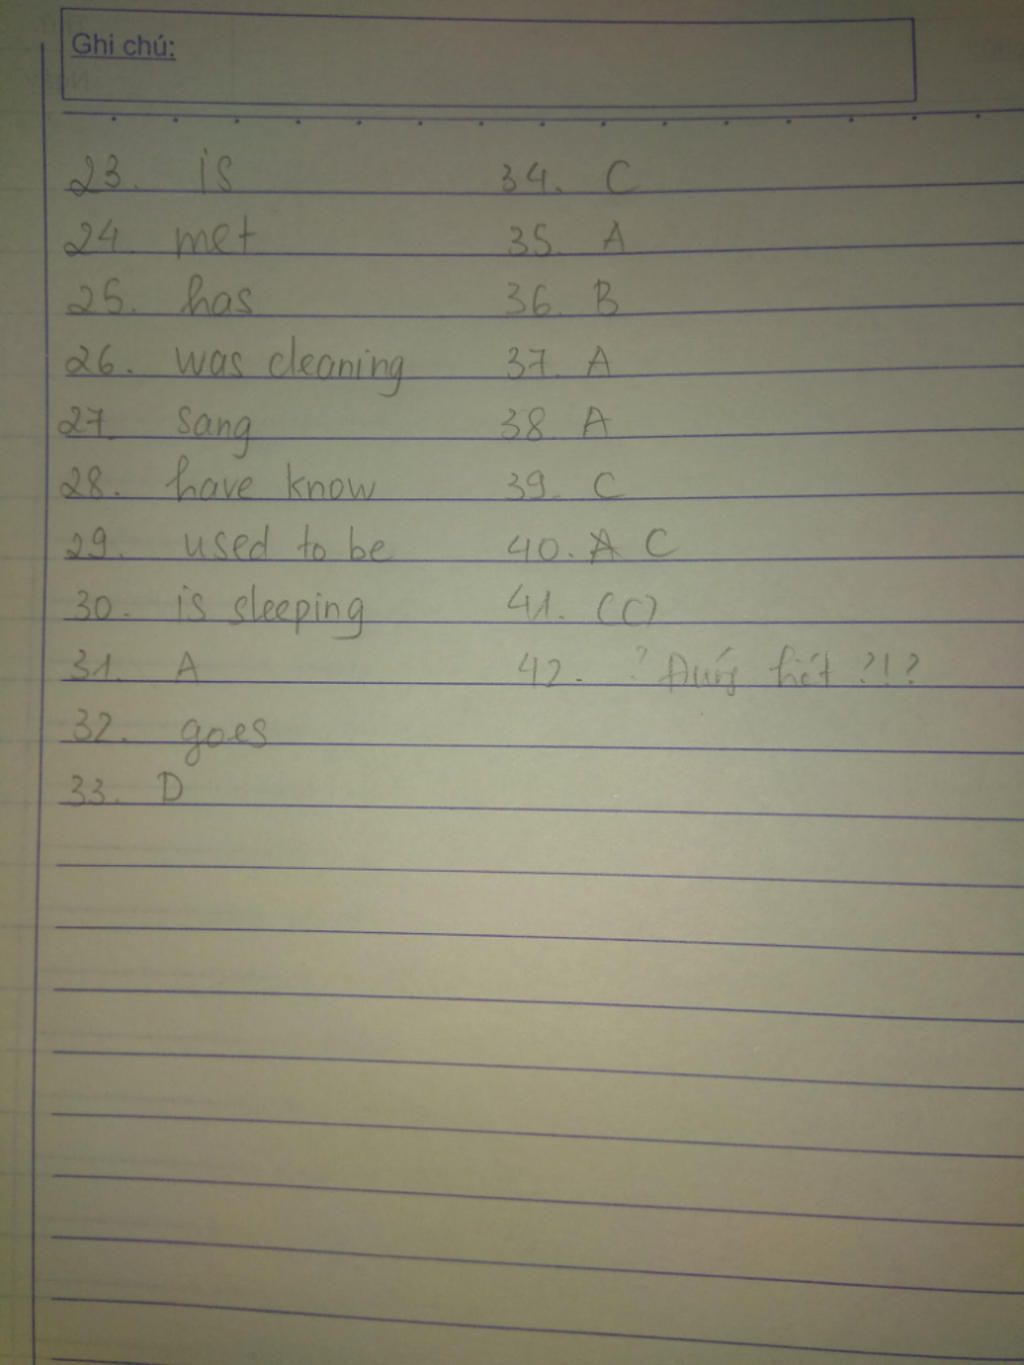 Ghi chú:
23. is
24. met
25. has
26. was cleaning
27. sang
28. have know
29. used to be
30. is sleeping
31. A
32. goes
33. D
34. C
35. A
36. B
37. A
38 A
39. C
40. A C
41. (C)
42. ? Đúng hết ?!?